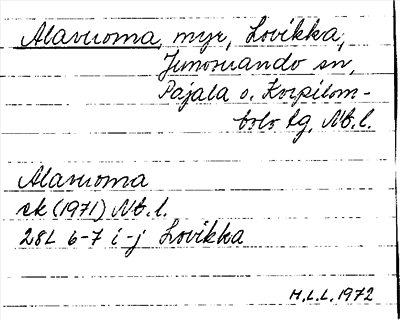 Alavuoma, myr, Lovikka,
Junosuando sn,
Pajala o. Korpilom-
bolo tg, Nb.l.
Alavuoma
ek (1971) Nb.l.
28L 6-7 i-j Lovikka
H.L.L. 1972